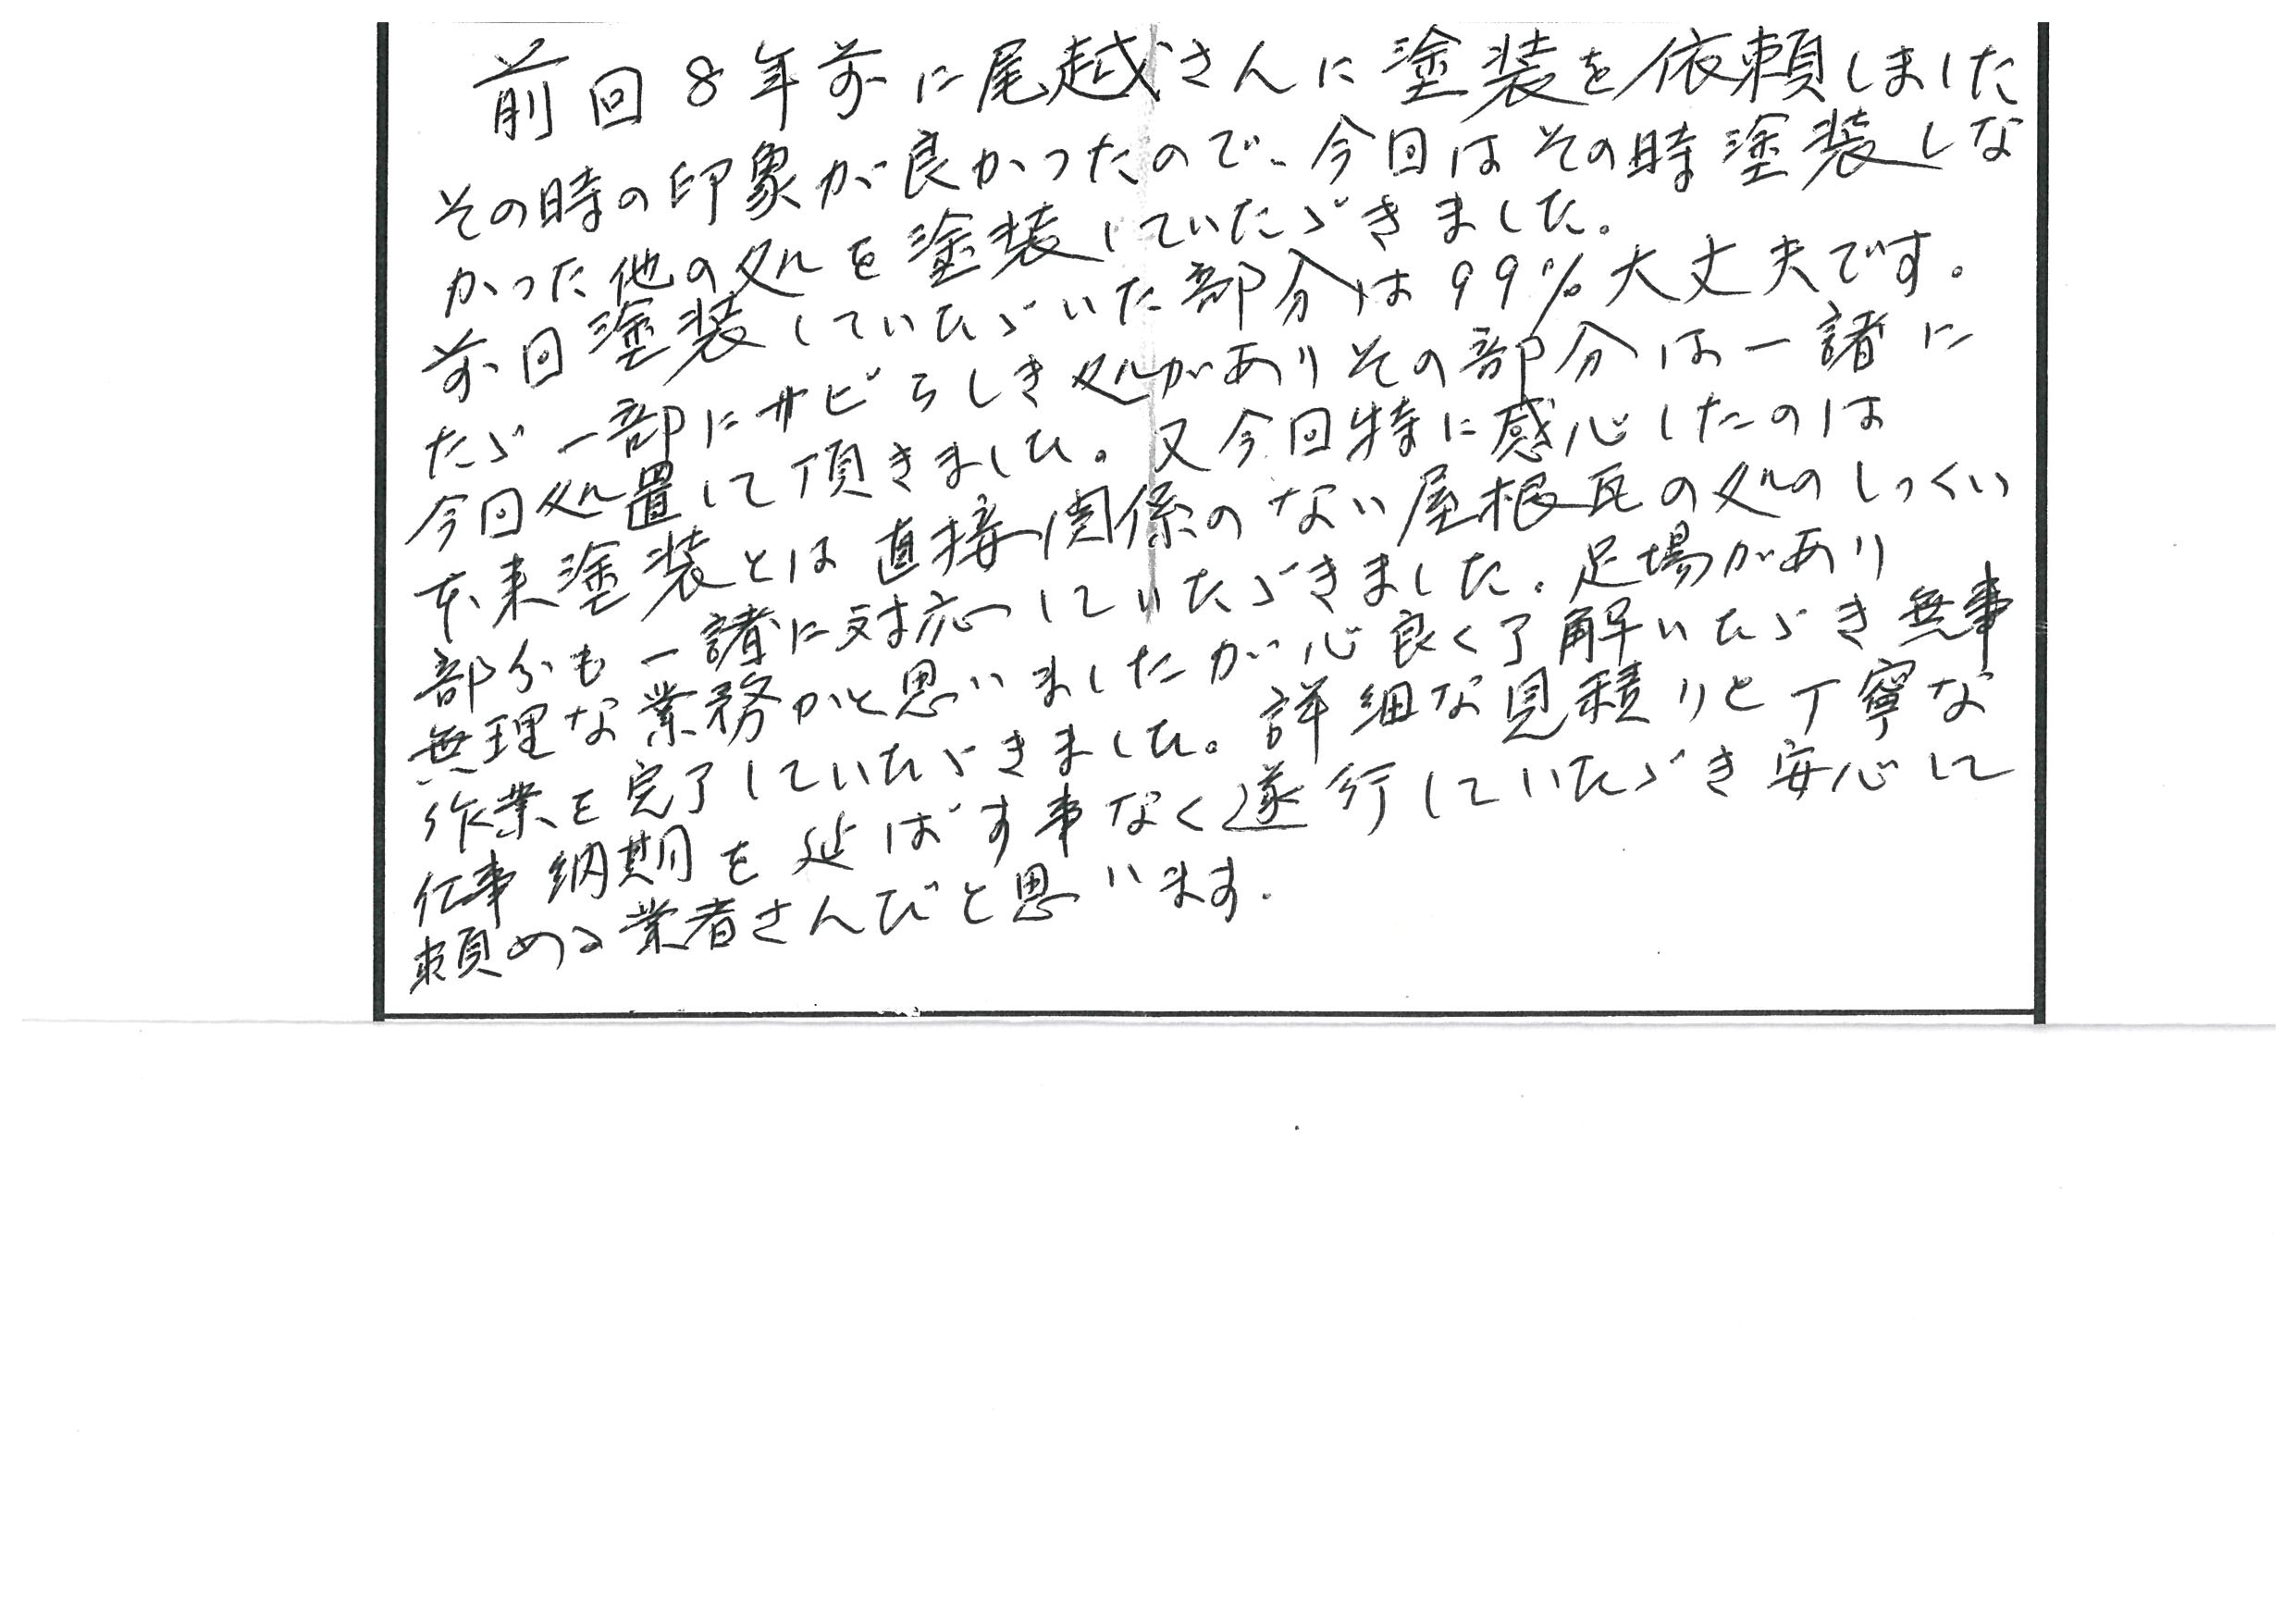 前回8年前に尾越さんに塗装を依頼しました
その時の印象が良かったので、今回はその時塗装しな
かった他の処を塗装していたゞきました。
前回塗装していたゞいた部分は99%大丈夫です。
たゞ一部にサビらしき処がありその部分は一諸に
今回処置して頂きました。又今回特に感心したのは
本来塗装とは直接関係のない屋根瓦の処のしっくい
部分も一諸に対応していたゞきました。足場があり
無理な業務かと思いましたが心良く了解いたゞき無事
作業を完了していたゞきました。詳細な見積りと丁寧な
仕事納期を延ばす事なく遂行していたゞき安心して
頼める業者さんだと思います.